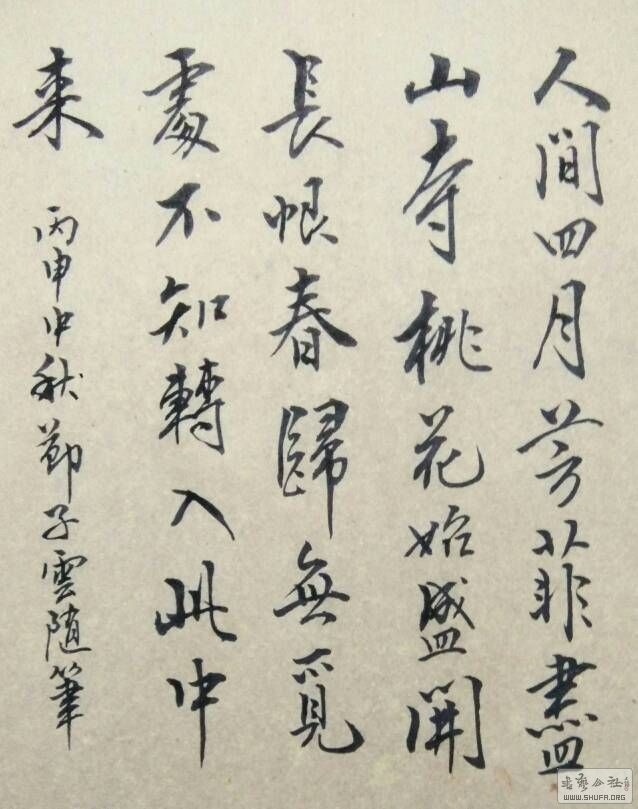 人間四月芳菲盡
山寺桃花始盛開
長恨春歸無覓
處不知轉入此中
来 丙申中秋節子雲随筆
WWW.SHUFA.ORG